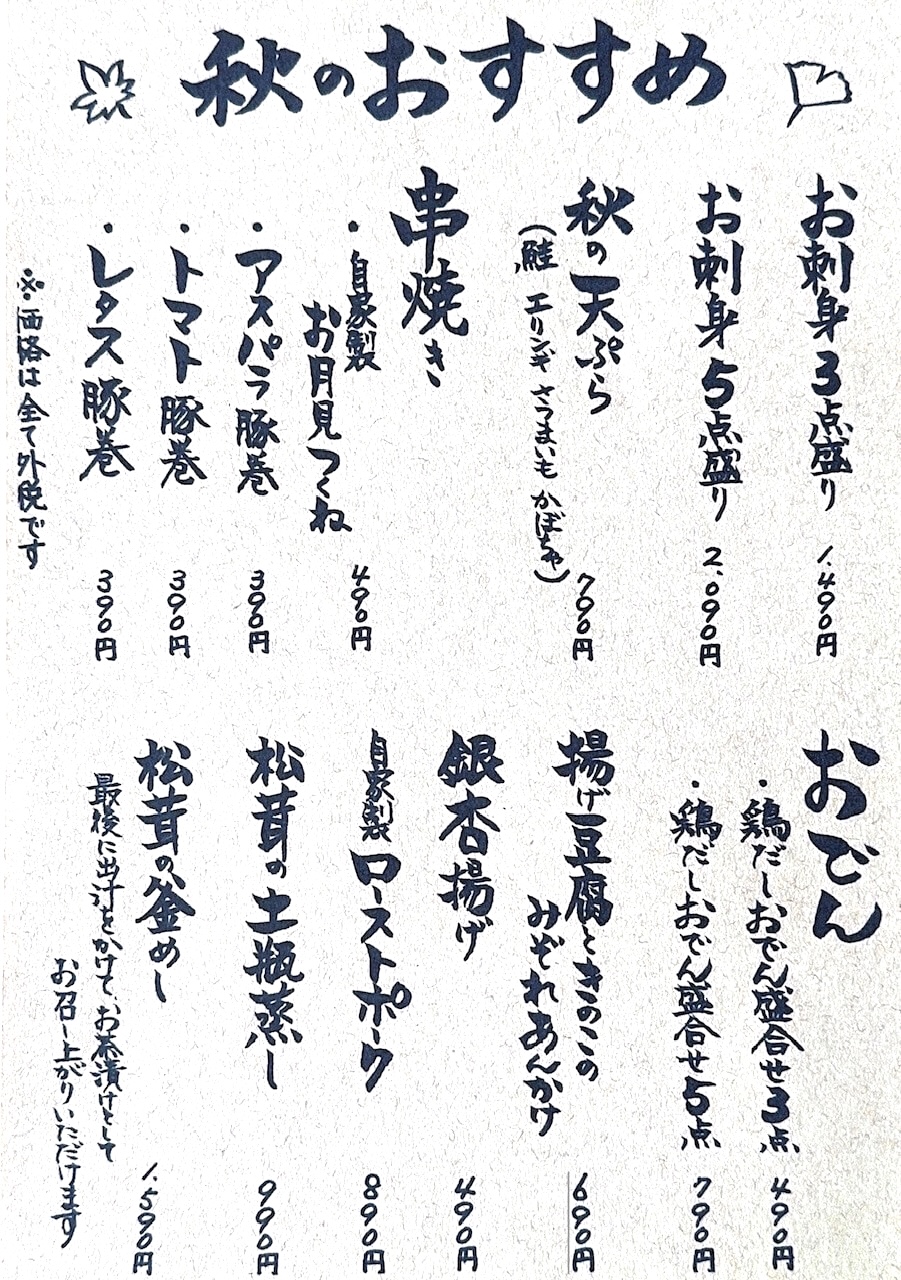 秋のおすすめ
お刺身3点盛り 1,490円
お刺身5点盛り 2,090円
秋の天ぷら 790円
(鮭 エリンギ さつまいも かぼちゃ)
串焼き
・自家製 お月見つくね 490円
・アスパラ豚巻 390円
・トマト豚巻 390円
・レタス豚巻 390円
※価格は全て外税です
おでん
・鶏だしおでん盛合せ3点 490円
・鶏だしおでん盛合せ5点 790円
揚げ豆腐ときのこの
みぞれあんかけ 690円
銀杏揚げ 490円
自家製ローストポーク 890円
松茸の土瓶蒸し 990円
松茸の釜めし 1,590円
最後に出汁をかけて、お茶漬けとして
お召し上がりいただけます